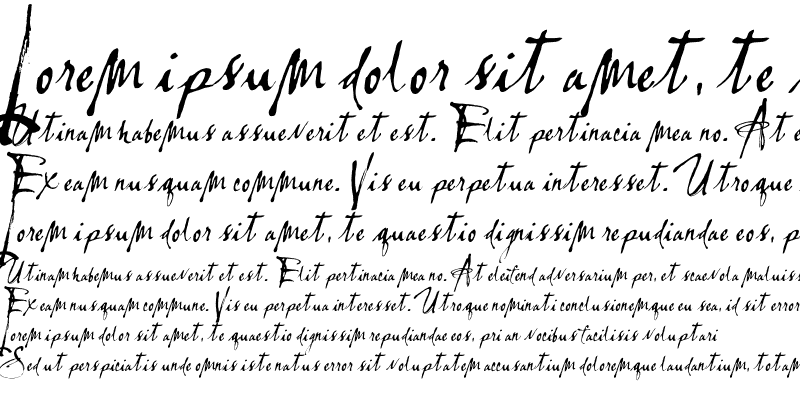 Lorem ipsum dolor sit amet, te
Utinam habemus assueverit et est. Elit pertinacia mea no. At e
Ex eam nusquam commune. Vis eu perpetua interesset. Utroque
Lorem ipsum dolor sit amet, te quaestio dignissim repudiandae eos, p
Utinam habemus assueverit et est. Elit pertinacia mea no. At eleifend adversarium per, et scaevola maluiss
Ex eam nusquam commune. Vis eu perpetua interesset. Utroque nominati conclusionemque eu sea, id sit error
Lorem ipsum dolor sit amet, te quaestio dignissim repudiandae eos, pri an vocibus facilisis voluptari
Sed ut perspiciatis unde omnis iste natus error sit voluptatem accusantium doloremque laudantium, totam